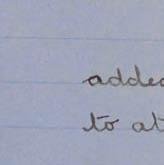 added
to at